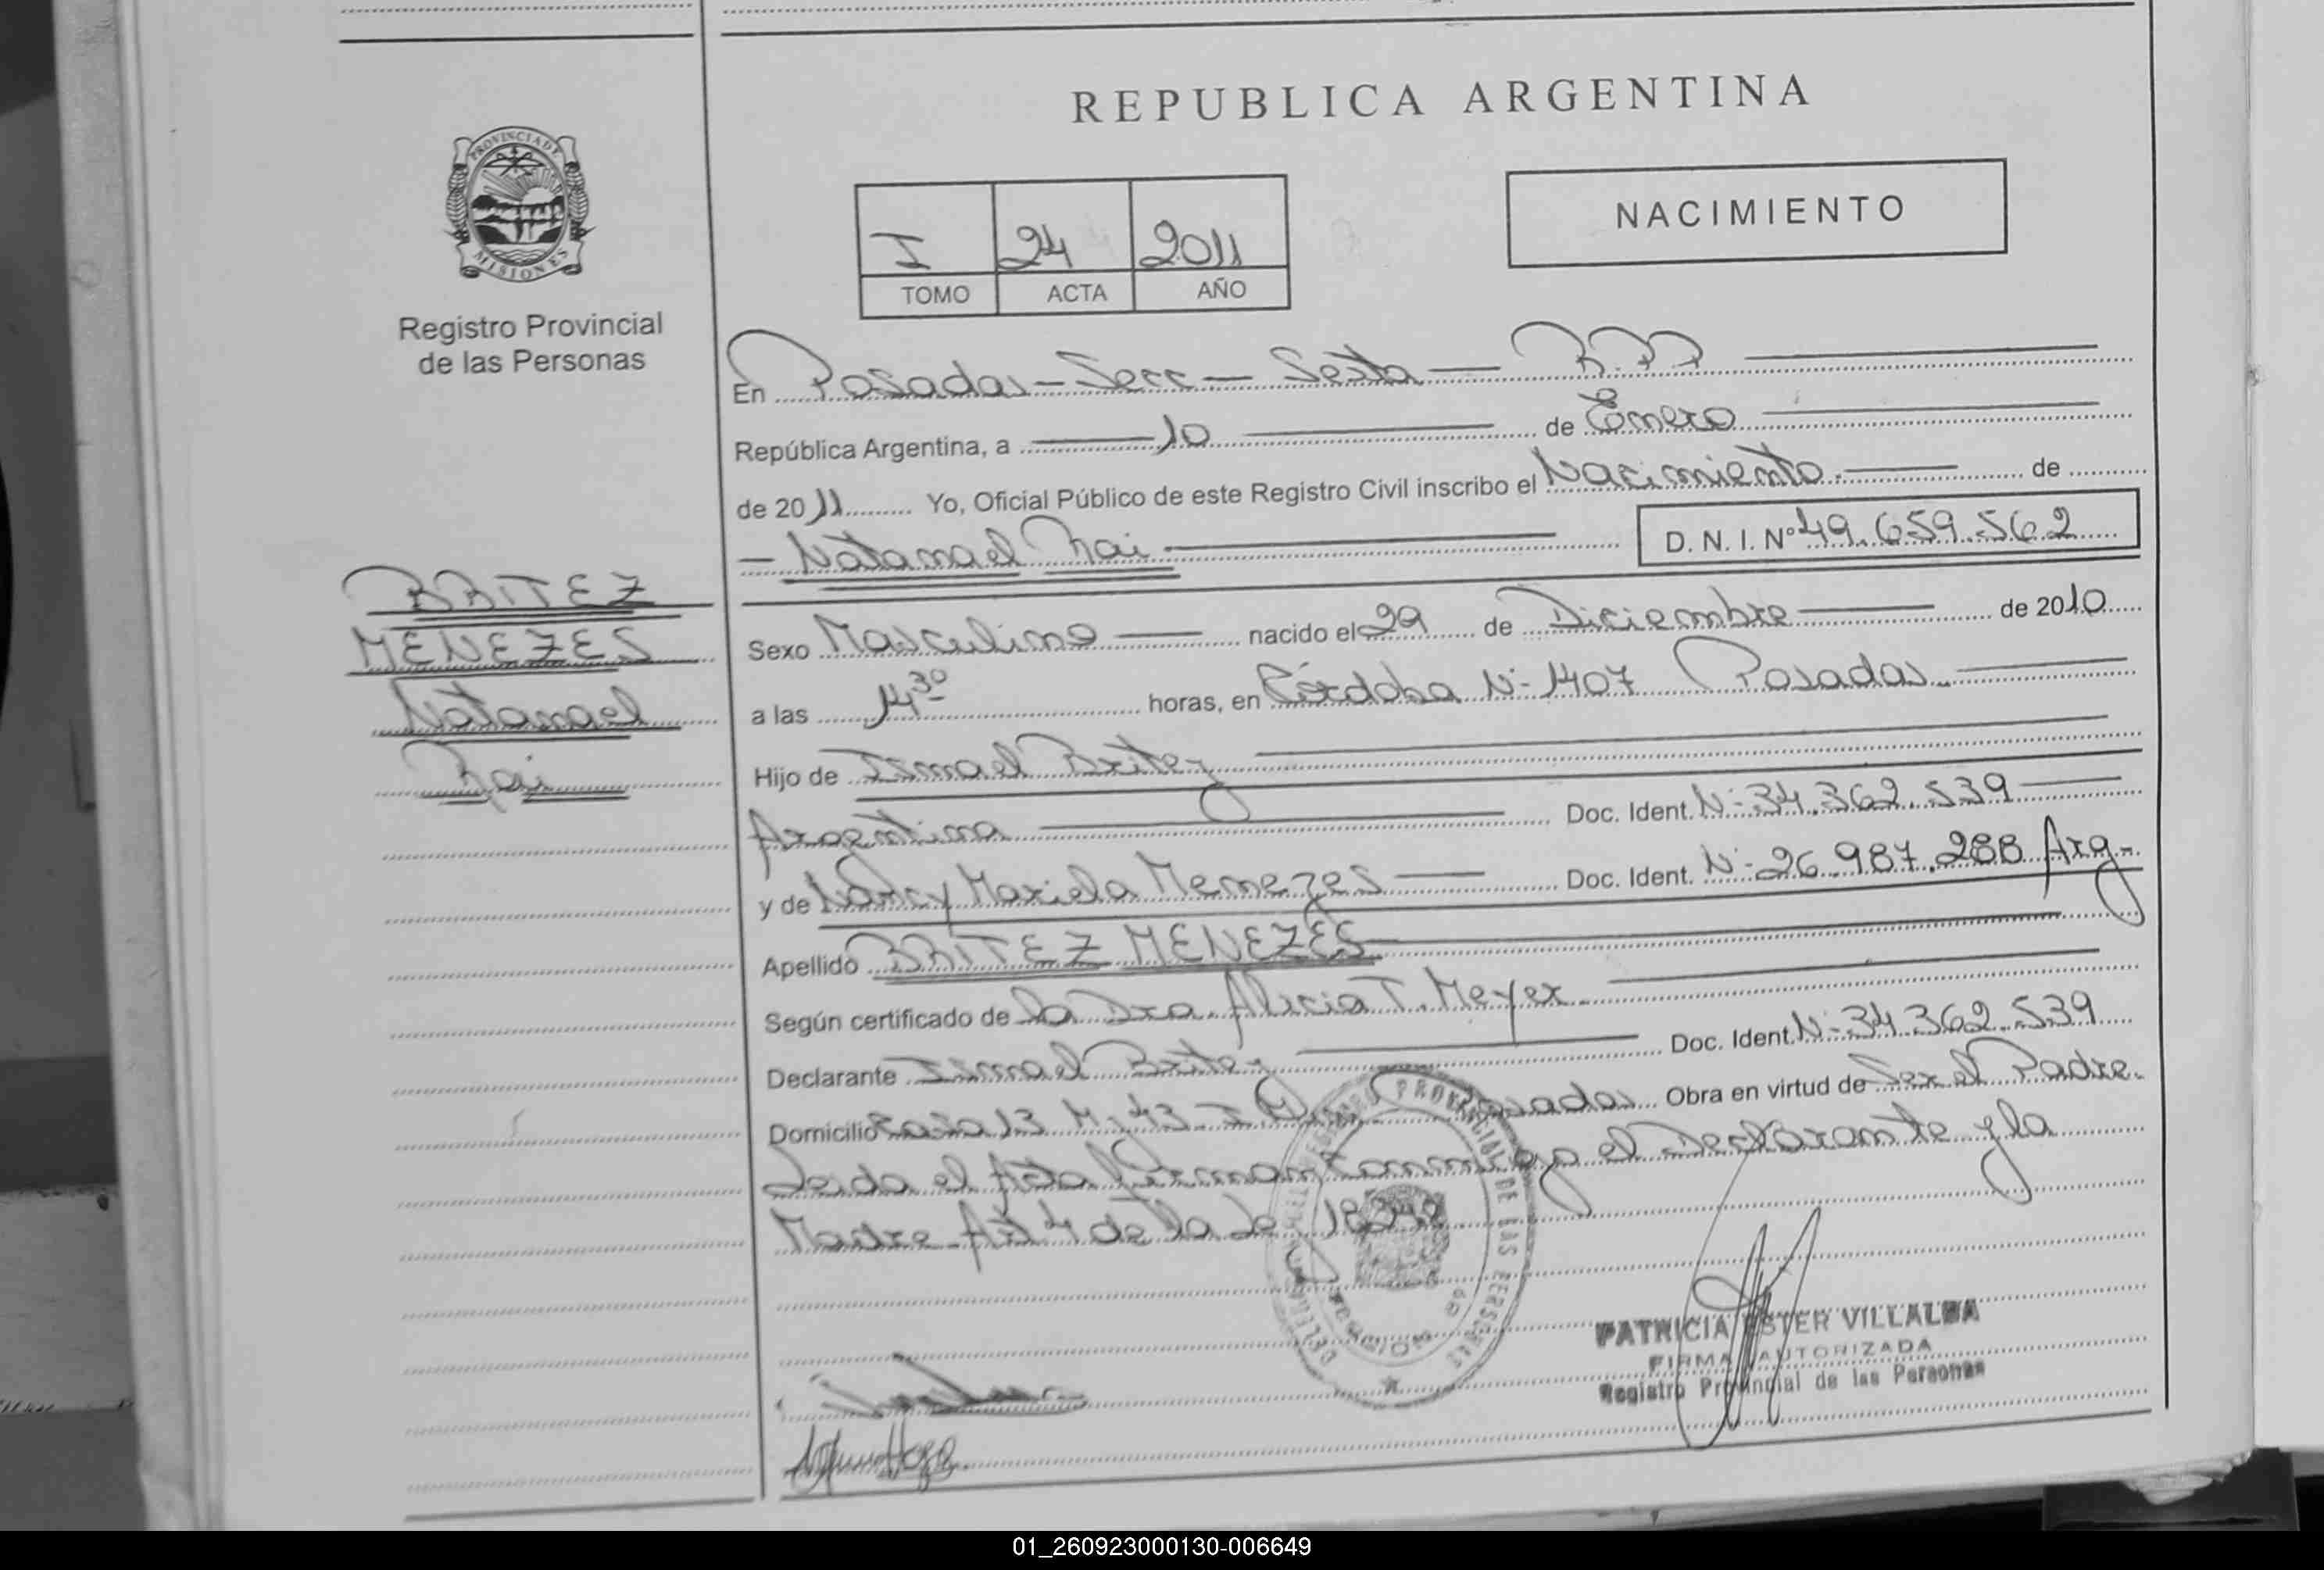 REPUBLICA ARGENTINA
PROVINCIA DE MISIONES
Registro Provincial
de las Personas
I 24 2011
TOMO ACTA AÑO
NACIMIENTO
En Posadas - Secc - Sexta - R.P.P
República Argentina, a 10 de Enero
de 2011 Yo, Oficial Público de este Registro Civil inscribo el Nacimiento. de
- Natanael Rai D. N. I. Nº 49.659.562
BRITEZ
MENEZES
Natanael
Rai
Sexo Masculino nacido el 29 de Diciembre de 2010
a las 14 30 horas, en Córdoba Nº 1407 Posadas.
Hijo de Ismael Britez
Argentino Doc. Ident. Nº 34.362.539
y de Nancy Mariela Menezes Doc. Ident. Nº 26.987.288 Arg-
Apellido BRITEZ MENEZES
Según certificado de la Dra. Alicia T. Meyer
Declarante Ismael Britez Doc. Ident. Nº 34.362.539
Domicilio Posadas Obra en virtud de Ser el Padre.
Leida el Acta Firman conmigo el Declarante y la
Madre Art 4 de la Ley 18248
REGISTRO PROVINCIAL DE LAS PERSONAS
PATRICIA ESTER VILLALBA
FIRMA AUTORIZADA
Registro Provincial de las Personas
01_260923000130-006649